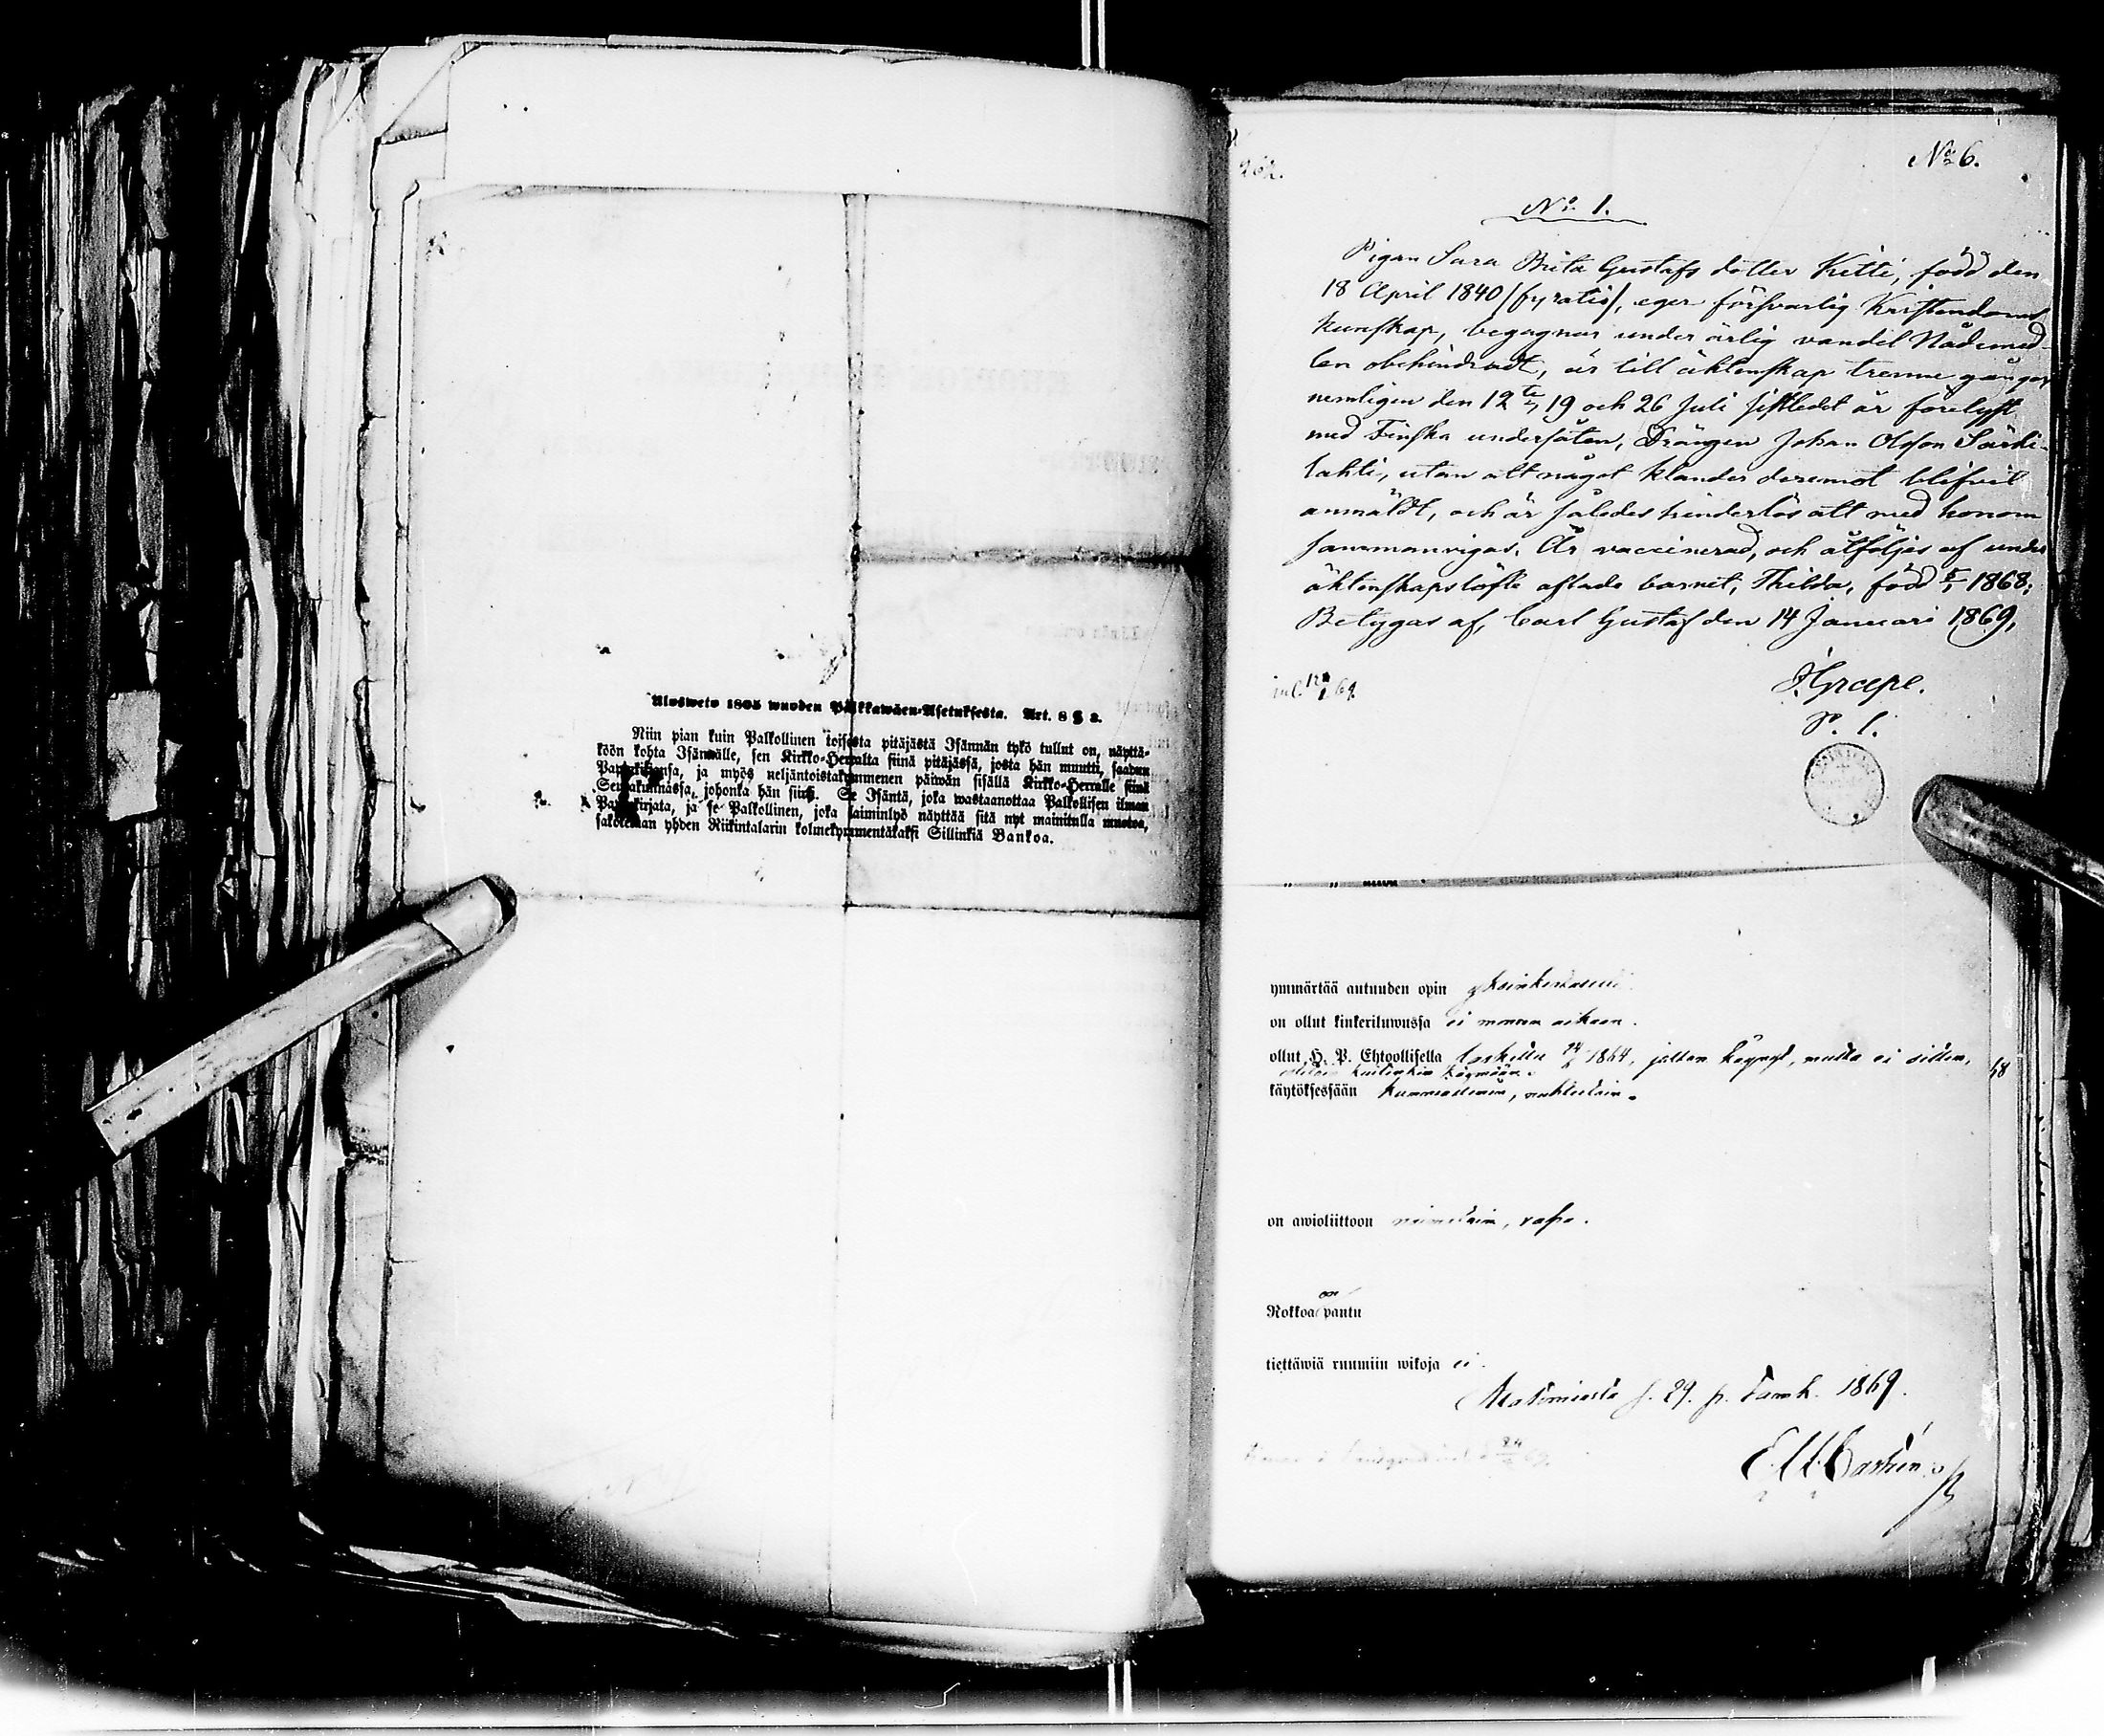 Ulosweto 1805 wuoden Palkkawäen-Asetuksesta. Art. 8 § 3.
Niin pian kuin Palkollinen toisesta pitäjästä Isännän tykö tullut on, näyttä-
köön kohta Isännälle, sen Kirkko-Herralta siinä pitäjässä, josta hän muutti, saadun
Papinkirjansa, ja myös neljäntoistakymmenen päiwän sisällä Kirkko-Herralle siinä
Seurakunnassa, johonka hän siirtä. Se Isäntä, joka wastaanottaa Palkollisen ilman
Papinkirjata, ja se Palkollinen, joka laiminlyö näyttää sitä nyt mainitulla muotoa,
sakoitetaan yhden Riikintalarin kolmekymmentäkaksi Sillinkiä Bankoa.
No 6.
No 1.
Pigan Sara Brita Gustafs dotter Kitti, född den
18 April 1840 /fyratio/, eger försvarlig Kristendoms
kunskap, begagnar under ärlig vandel Nådemed-
len obehindradt, är till äktenskap trenne gånger
nemligen den 12te, 19 och 26 Juli sistledet år förelyst
med Finska undersåten, Drängen Johan Olofson Särki-
lahti, utan att något klander deremot blifvit
anmäldt, och är således hinderlös att med honom
sammanvigas. Är vaccinerad, och åtföljes af under
äktenskapslöfte aflade barnet, Thilda, född 1868;
Betygas af, Carl Gustaf den 14 Januari 1869,
J. Grape.
P. l.
ymmärtää autuuden opin yksinkertaisesti
on ollut kinkeriluwussa ei monen aikaan.
ollut H. P. Ehtoollisella 1864, jolloin käynyt, mutta ei sitten,
käytöksessään kunniallinen, nuhteetoin.
on awioliittoon naimatoin, vapa.
on
Rokkoa pantu
tiettäwiä ruumiin wikoja ei.
29. p. Tamk. 1869.